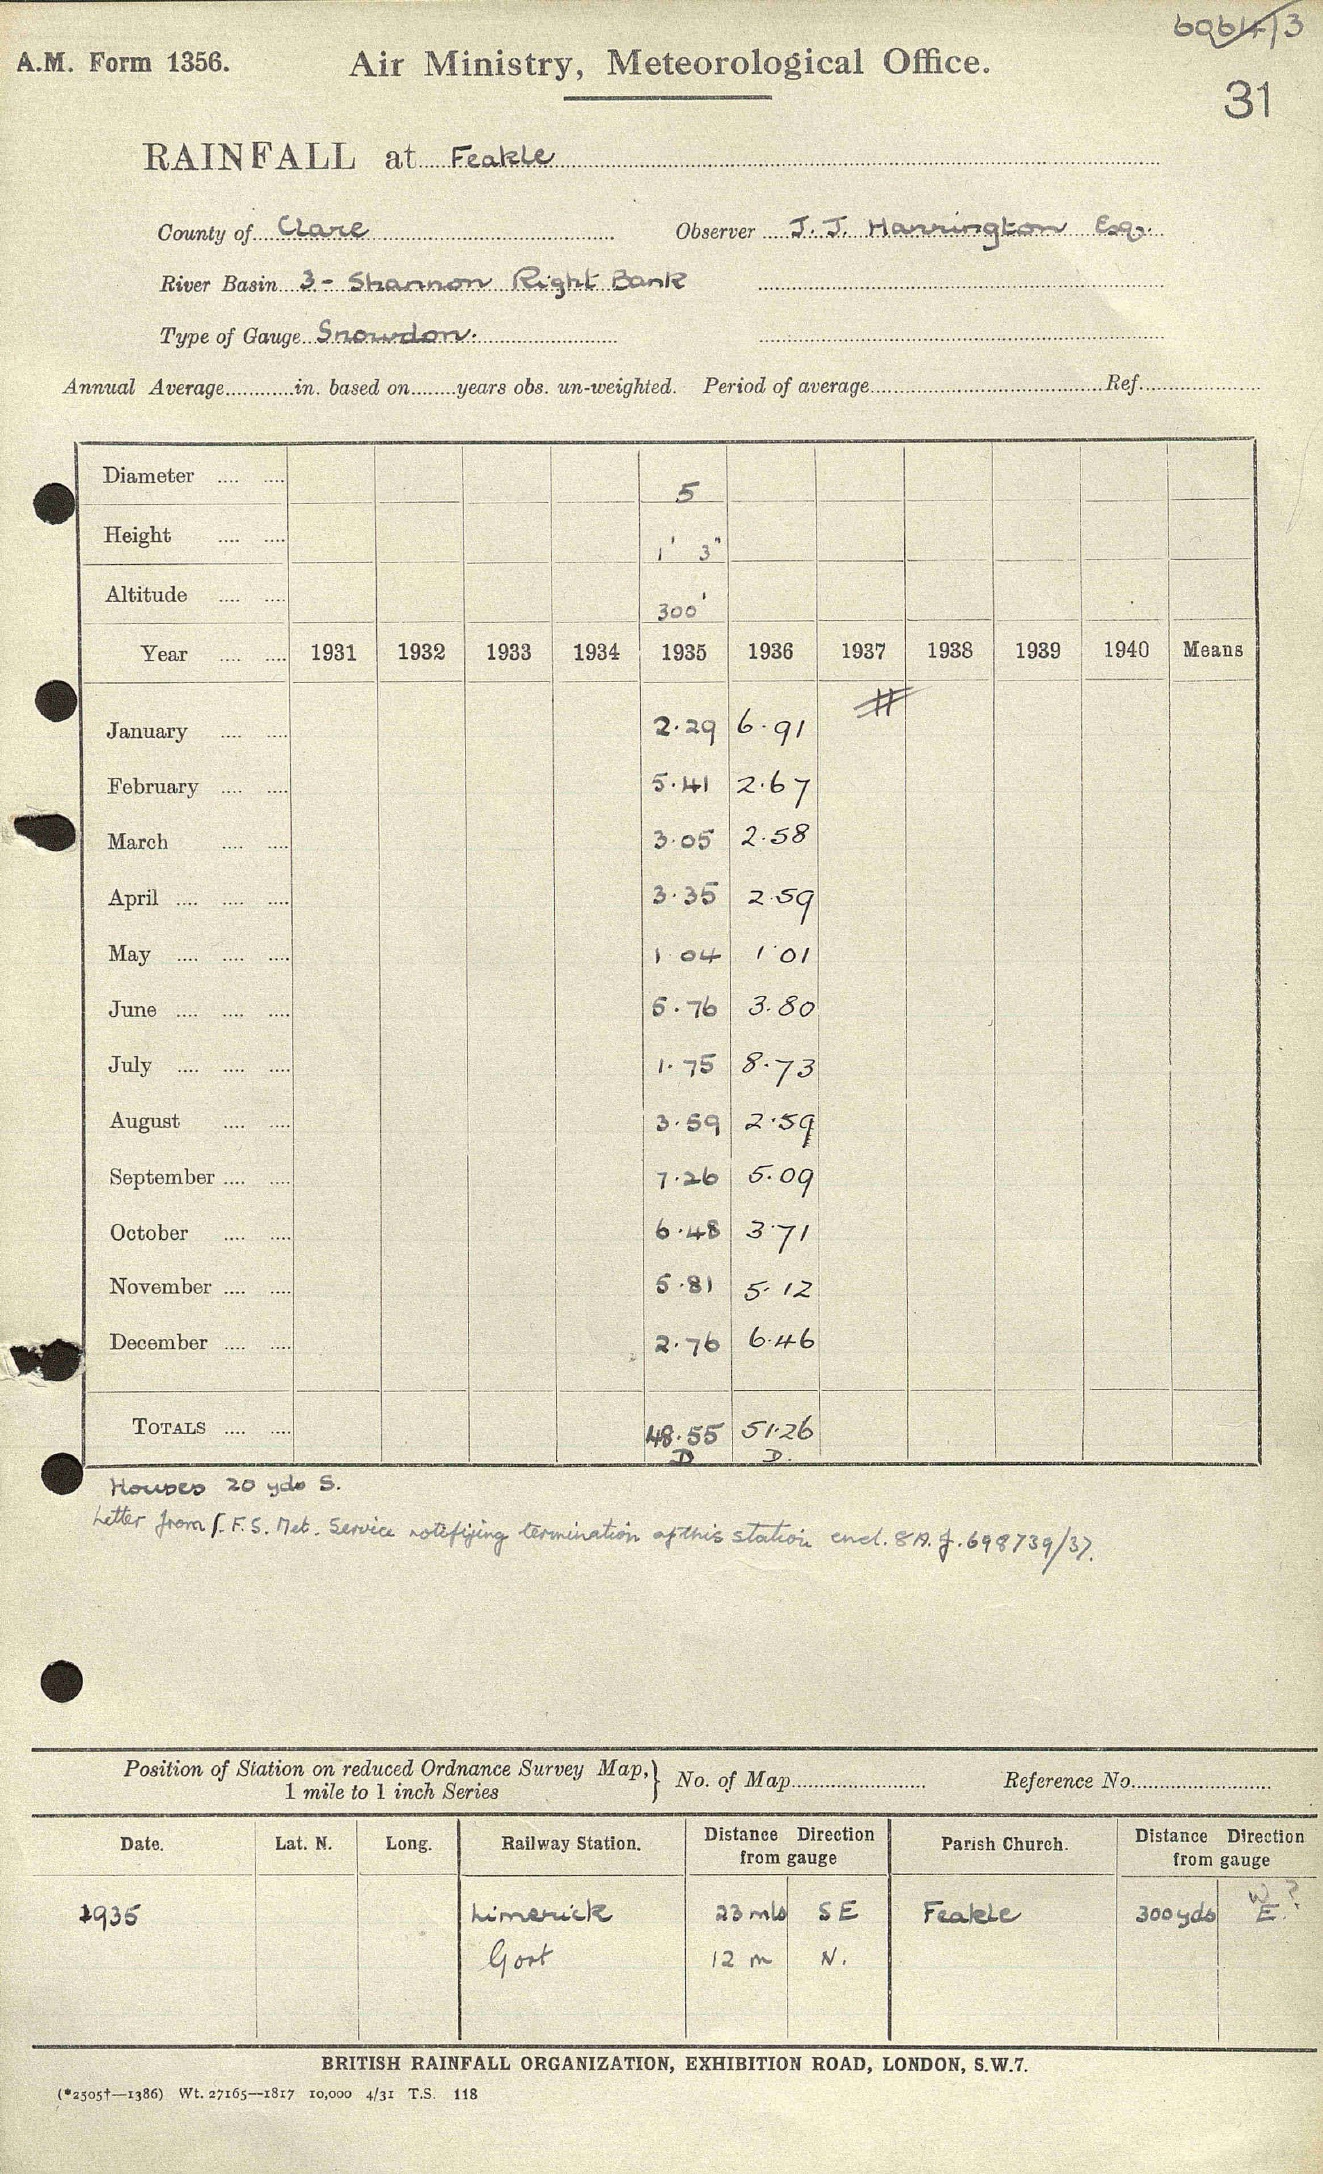 6964/3
A.M. Form 1356. Air Ministry, Meteorological Office.
31
RAINFALL at Feakle
County of Clare Observer J. J. Harrington Esq.
River Basin 3 - Shannon Right Bank
Type of Gauge Snowdon.
Annual Average............in. based on........years obs. un-weighted. Period of average.............Ref.............
Diameter .... .... 5
Height .... .... 1' 3"
Altitude .... .... 300'
Year .... .... 1931 1932 1933 1934 1935 1936 1937 1938 1939 1940 Means
January .... .... 2.29 6.91 #
February .... .... 5.41 2.67
March .... .... 3.05 2.58
April .... .... .... 3.35 2.59
May .... .... .... 1.04 1.01
June .... .... .... 5.76 3.80
July .... .... .... 1.75 8.73
August .... .... 3.59 2.59
September .... .... 7.26 5.09
October .... .... 6.48 3.71
November .... .... 5.81 5.12
December .... .... 2.76 6.46
TOTALS .... .... 48.55 51.26
D D.
Houses 20 yds S.
Letter from I.F.S. Met. Service notifying termination of this station encl. 8A. J. 698739/37.
Position of Station on reduced Ordnance Survey Map,} No. of Map............ Reference No............
1 mile to 1 inch Series
Date. Lat. N. Long. Railway Station. Distance Direction from gauge Parish Church. Distance Direction from gauge
W ?
1935 Limerick 23 mls SE Feakle 300 yds E.
Gort 12 m N.
BRITISH RAINFALL ORGANIZATION, EXHIBITION ROAD, LONDON, S.W.7.
(*2505†—1386) Wt. 27165—1817 10,000 4/31 T.S. 118